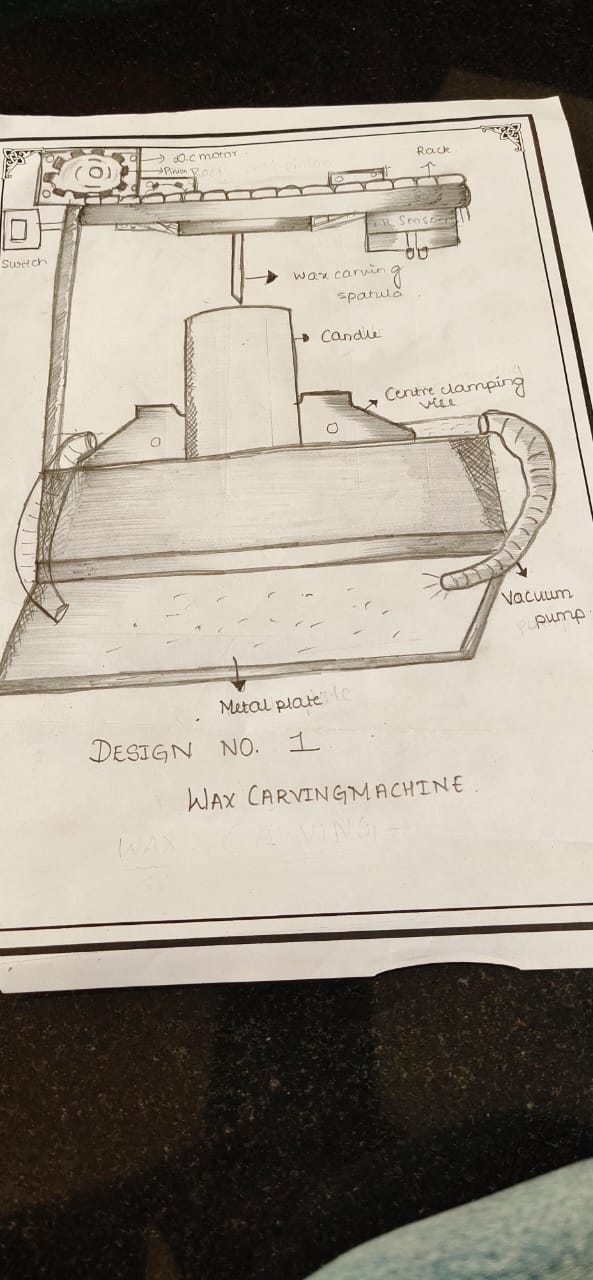 D.C motor
Pinion
Rack
Switch
IR Sensor
wax carving
spatula
Candle
Centre clamping
vise
Vacuum
pump
Metal plate
DESIGN NO. 1
WAX CARVINGMACHINE.
WAX CARVING